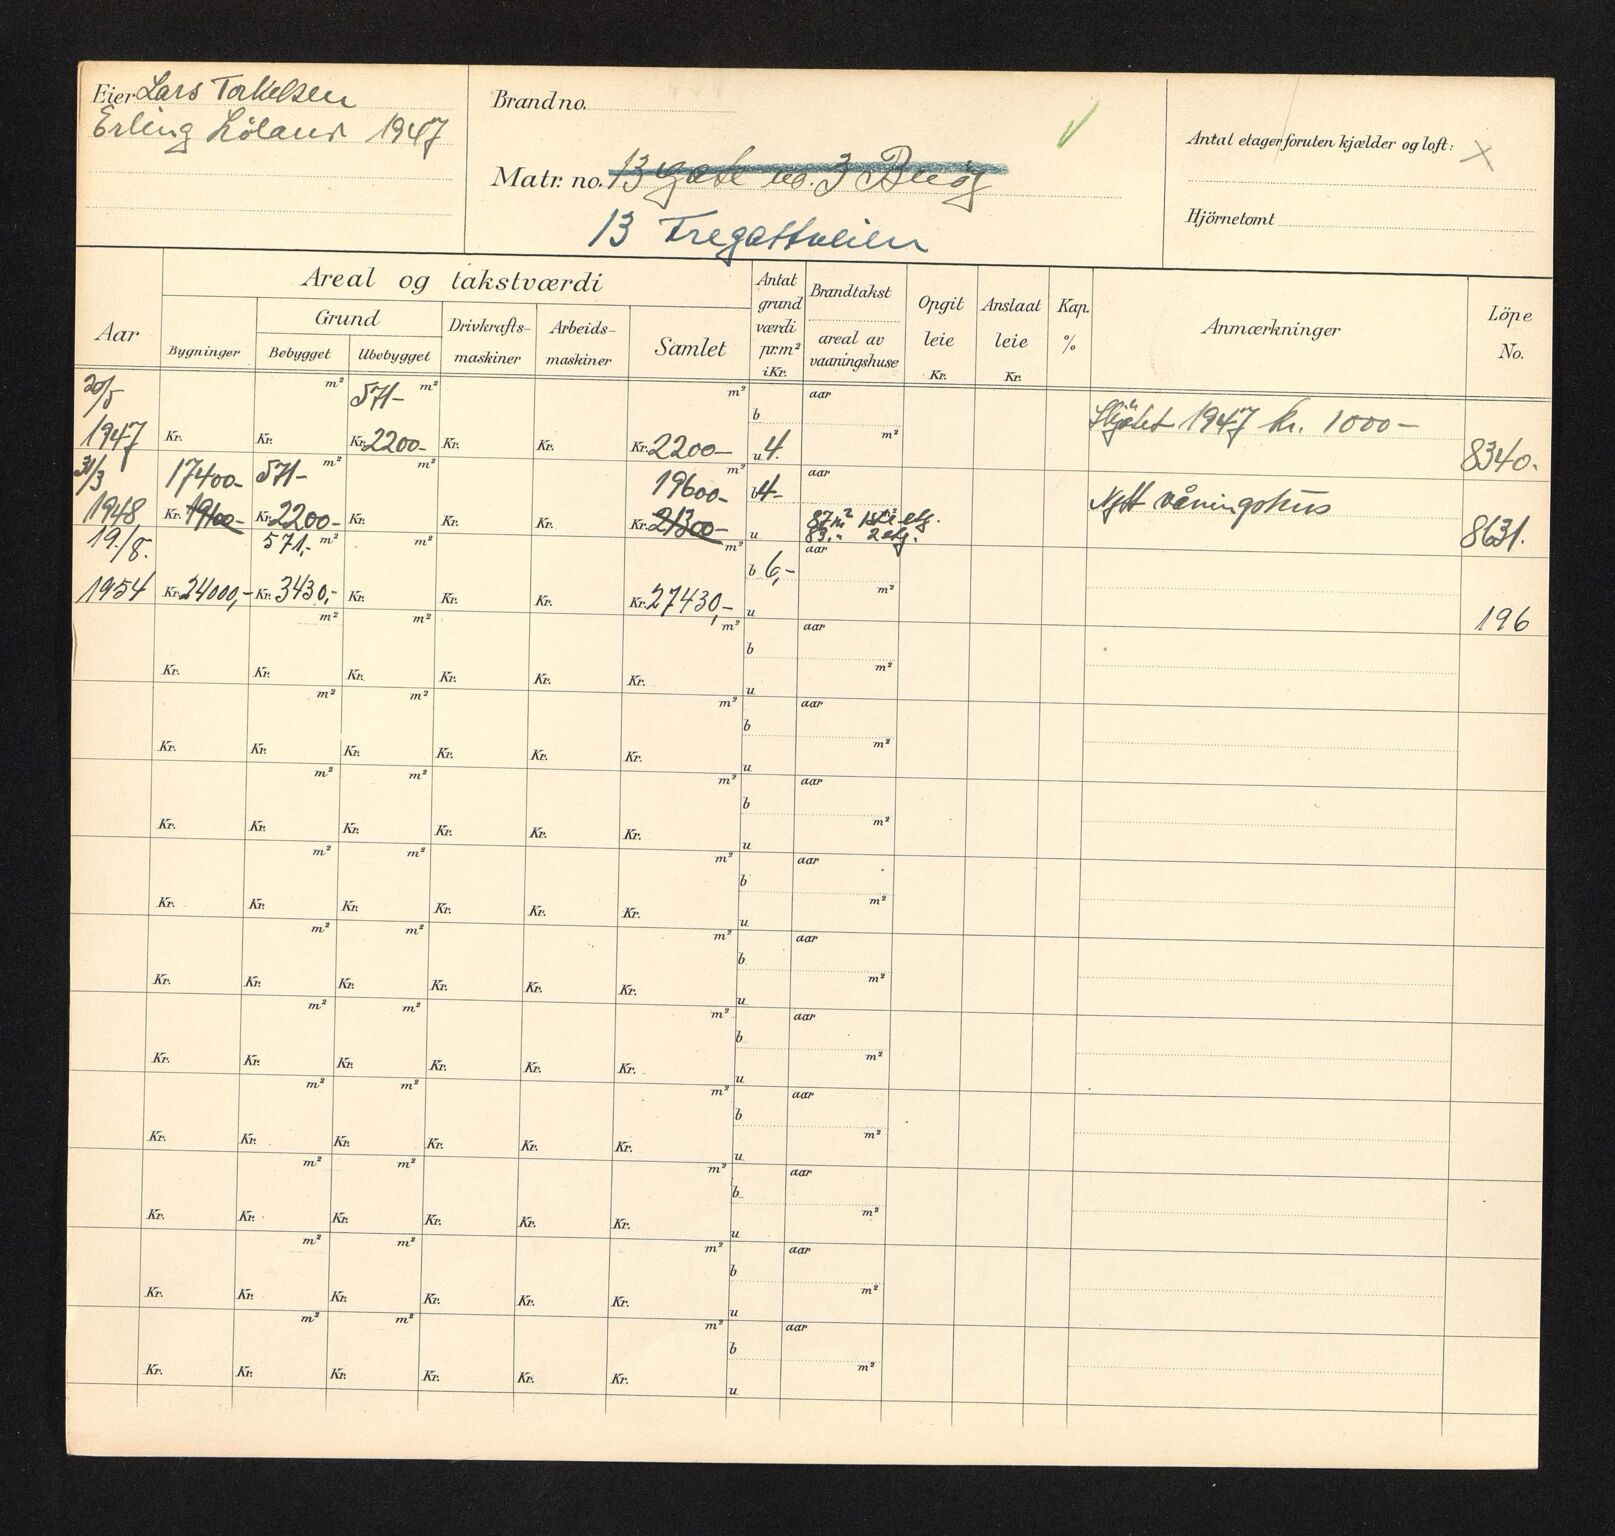 Eier Lars Torkelsen
Erling Löland 1947
Brand no.
Matr. no. 13 gate no. 3 Buøy
13 Tregattveien
Antal etager foruten kjælder og loft: X
Hjörnetomt
Aar
Areal og takstværdi
Bygninger
Grund
Bebygget
Ubebygget
Drivkrafts-
maskiner
Arbeids-
maskiner
Samlet
Antat
grund
værdi
pr. m²
i Kr.
Brandtakst
areal av
vaaningshuse
Opgit
leie
Kr.
Anslaat
leie
Kr.
Kap.
%
Anmærkninger
Löpe
No.
20/5 m² 571- m² m² aar
b
Skjötet 1947 kr. 1000-
1947 Kr. Kr. Kr. 2200- Kr. Kr. Kr. 2200- u 4. m² 8340.
31/3 17400- 571- m² m² 19600- m² b 4- aar
Nytt våningshus
1948 Kr. 19100- Kr. 2200- Kr. Kr. Kr. Kr. 21300- u 87 m² 1ste etg. 8631.
83 " 2 etg.
19./8. 571,- m² m² m² b 6,- aar
1954 Kr. 24000,- Kr. 3430,- Kr. Kr. Kr. Kr. 27430,- u m² 196
m² m² m² b aar
Kr. Kr. Kr. Kr. Kr. Kr. u m²
m² m² m² b aar
Kr. Kr. Kr. Kr. Kr. Kr. u m²
m² m² m² b aar
Kr. Kr. Kr. Kr. Kr. Kr. u m²
m² m² m² b aar
Kr. Kr. Kr. Kr. Kr. Kr. u m²
m² m² m² b aar
Kr. Kr. Kr. Kr. Kr. Kr. u m²
m² m² m² b aar
Kr. Kr. Kr. Kr. Kr. Kr. u m²
m² m² m² b aar
Kr. Kr. Kr. Kr. Kr. Kr. u m²
m² m² m² b aar
Kr. Kr. Kr. Kr. Kr. Kr. u m²
m² m² m² b aar
Kr. Kr. Kr. Kr. Kr. Kr. u m²
m² m² m² b aar
Kr. Kr. Kr. Kr. Kr. Kr. u m²